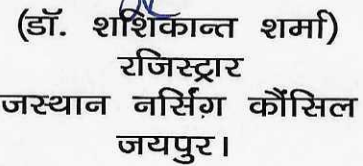 (डॉ. शशिकान्त शर्मा)
रजिस्ट्रार
जस्थान नर्सिंग कौंसिल
जयपुर।